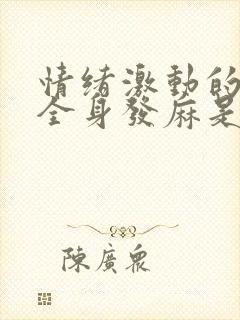 情緒激動的
全身發麻是
陳廣眾